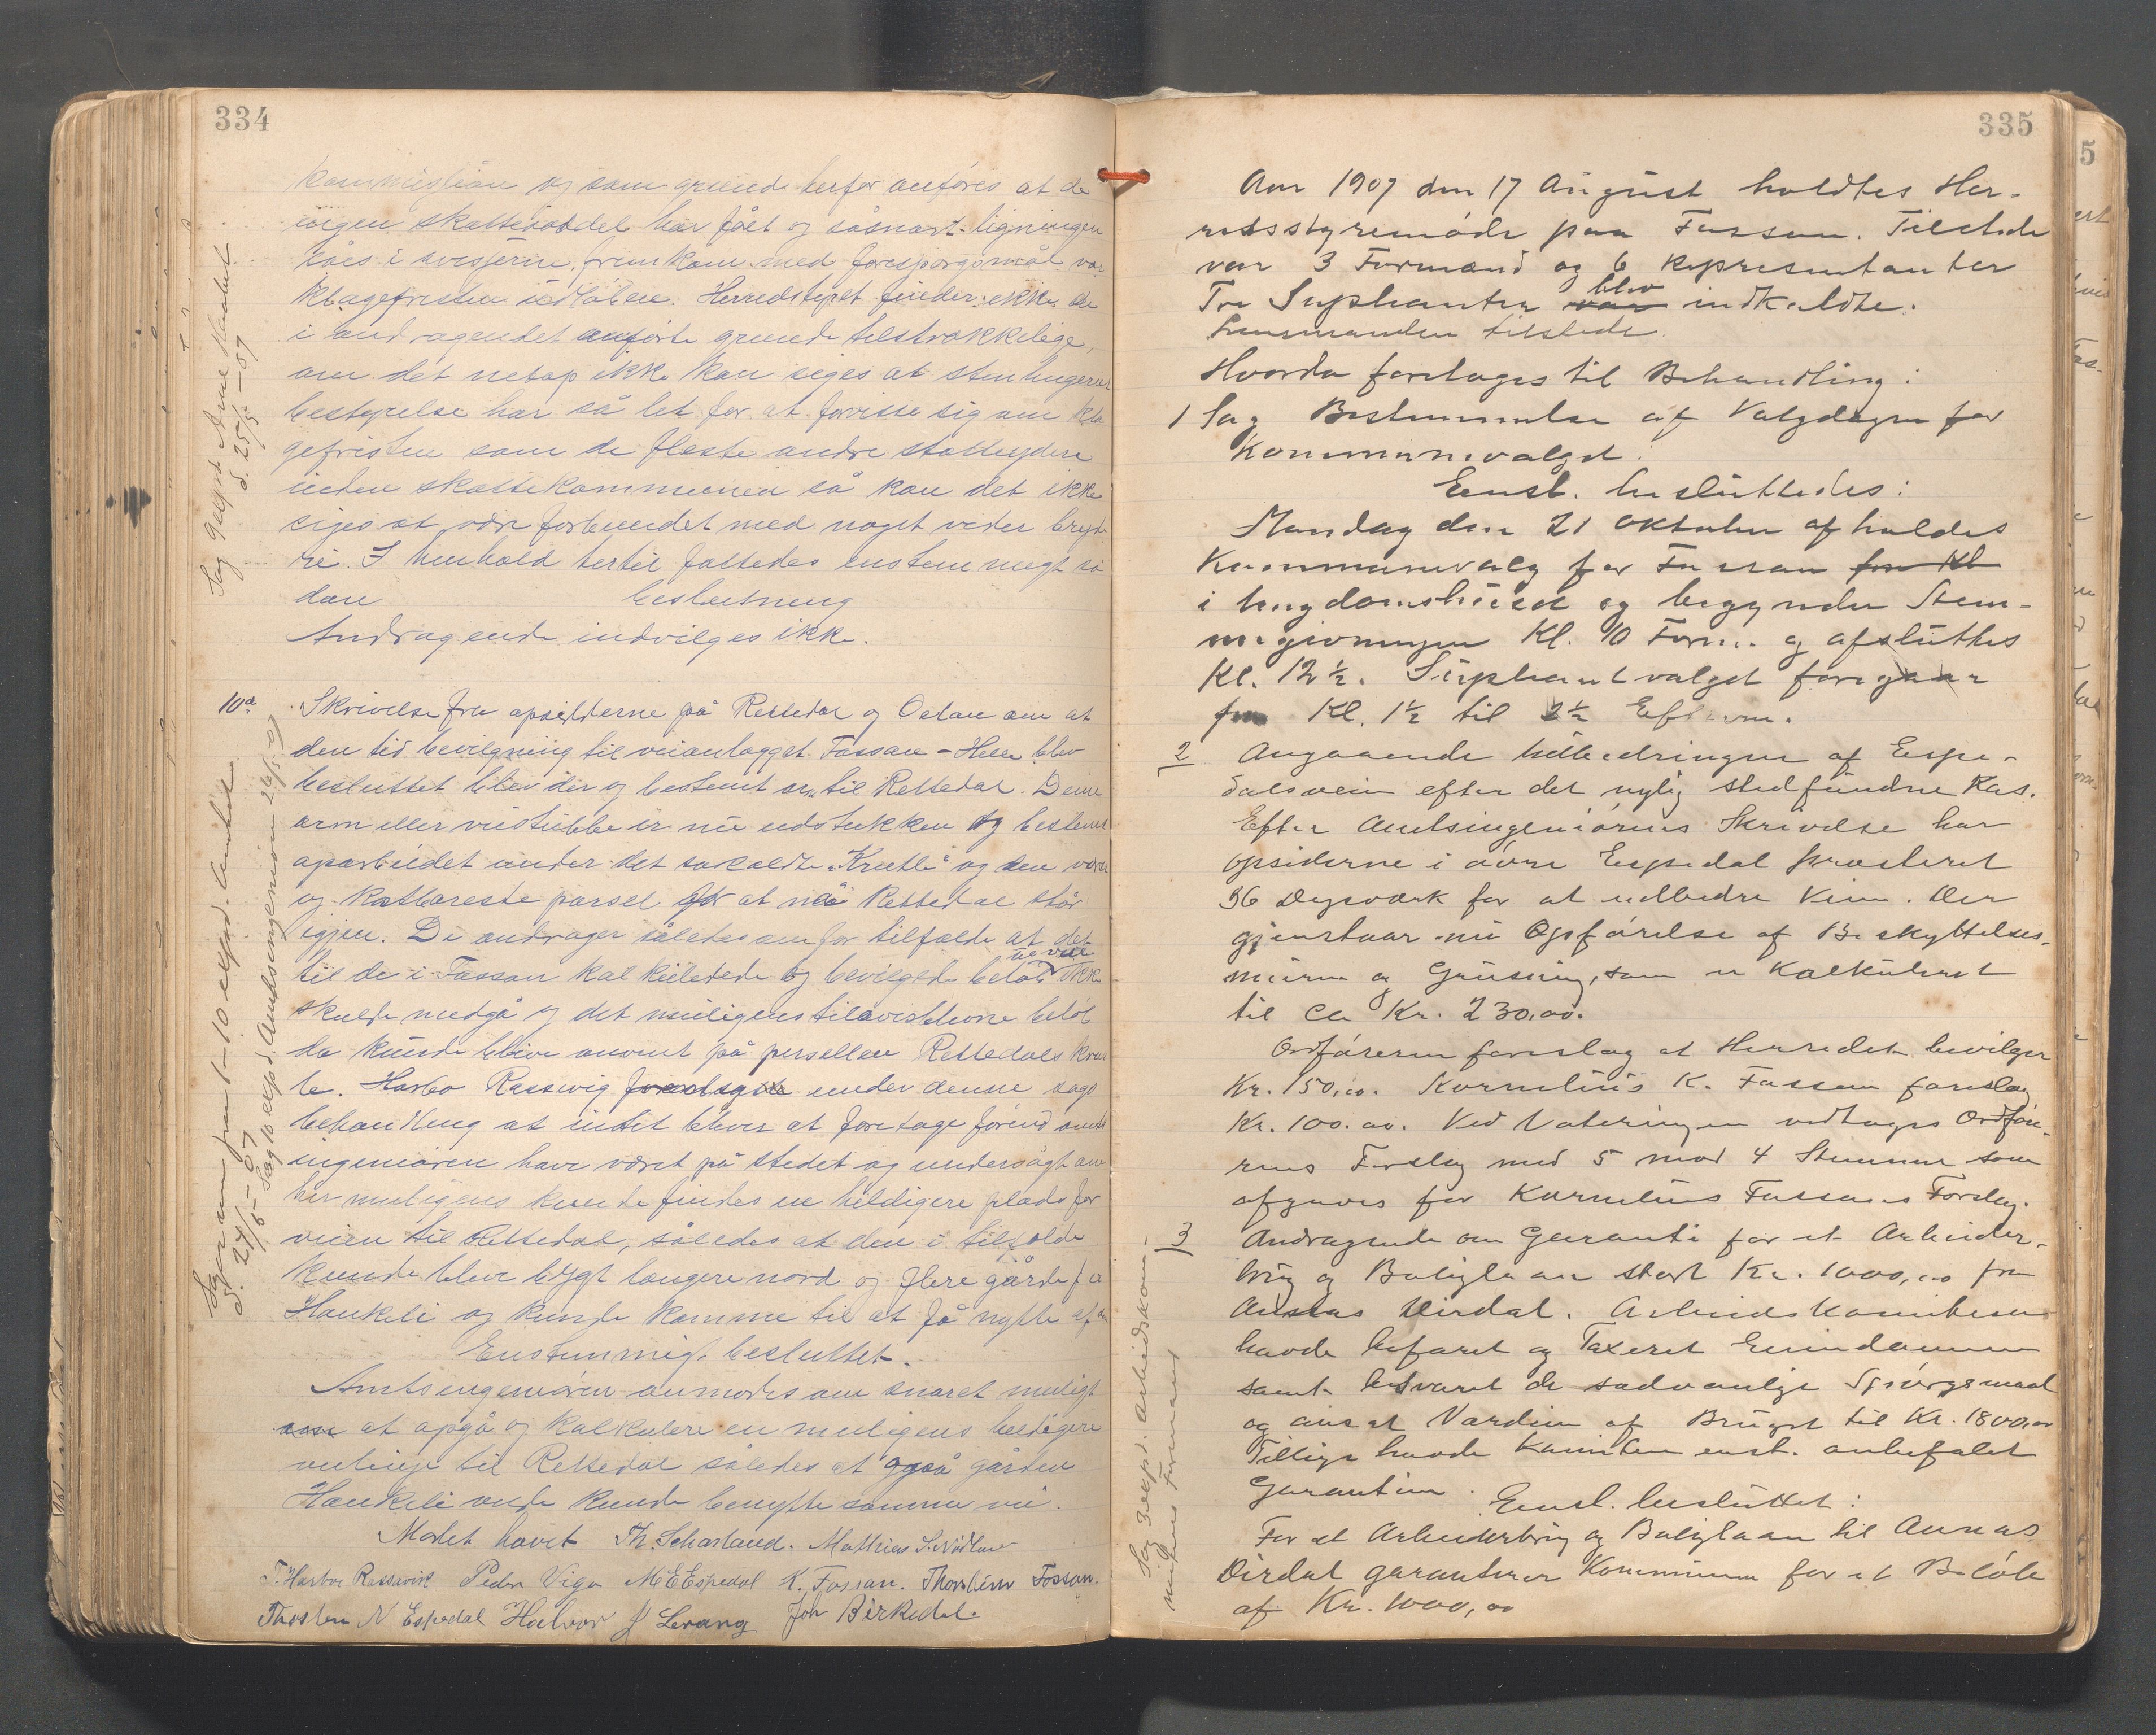 334
kommission og som grunde herfor anföres at de
ingen skatteseddel har fået og såsnart ligningen
våes i avisjerne fremkom med forespörgsmål var
klagefristen udlöben. Herredstyret finder ikke de
i andragendet anförte grunde tilstrækkelige,
om det netop ikke kan siges at
bestyrelse har så let for at forvisse sig om kla
gefristen som de fleste andre skatteydere
inden skattekommunen så kan det ikke
siges at være forbundet med noget videre bryde
ri. I henhold hertil fattedes enstemmigt så
dan beslutning
Andragende indvilges ikke.
Sag 9 exped. Amtskontret
d. 25/5-07
10de Skrivelse fra opsidderne på Rettedal og Oelan om at
den tid bevilgning til veianlægget Fossan – Helle blev
besluttet blev der og bestemt arm til Rettedal. Denne
arm eller veistubbe er nu udstukken og bestemt
oparbeidet under det såkaldte "Krutle" og den værste
og kostbareste parsel for at nå Rettedal står
igjen. De andrager således om for tilfælde at det
til de i Fossan kalkulerede og bevilgede belöb ikke
skulde medgå og det muligens tiloversblevne belöb
da kunde blive anvent på parsellen Rettedals
le. Harbo Rassvig foreslog under denne sags
behandling at intet blever at foretage förend amts
ingeniören have været på stedet og undersögt om
her muligens kunde findes en heldigere plads for
veien til Rettedal, således at den i tilfælde
kunde bleve bygt længere nord og flere gårde fra
Haukeli og kunde komme til at få nytte af
Enstemmigt besluttet.
Amtsingeniören anmodes om snarest muligt
at opgå og kalkulere en muligens heldigere
veilinje til Rettedal således at også gården
Haukeli vilde kunde benytte samme vei.
Mödet hævet Th. Scharland. Mathias S. Nödland
T. Harbo Rassevik Peder Viga M E Espedal K. Fossan. Thorstein Fossan.
Thosten N Espedal Halvor J Levang Joh Birkedal.
Sagerne fra 1-10 expd. Amtet
d. 24/5-07 Sag 10 expd. Amtsingeniören 26/5-07
335
Aar 1907 den 17 August holdtes Her-
redsstyremöde paa Fossan. Tilstede
var 3 Formænd og 6 Representanter
Tre Suplianter var blev indkaldte.
Lensmanden tilstede.
Hvorda foretoges til Behandling:
1 Sag Bestemmelse af Valgdagen for
Kommunevalget.
Enst. besluttedes:
Mandag den 21 Oktober afholdes
Kommunevalg for Fossan fra Kl
i Ungdomshuset og begynder Stem-
megivningen Kl. 10 Form. og afsluttes
Kl. 12½. Suppleantvalget foregaar
fra Kl. 1½ til 2½ Efterm.
2 Angaaende Udbedringen af Espe-
dalsveien efter det nylig stedfundne Ras.
Efter Amtsingeniörens Skrivelse har
opsiderne i övre Espedal præsteret
36 Dagsværk for at udbedre Veien. Der
gjenstaar nu Opförelse af Beskyttelses-
murer og Grusning, som er Kalkuleret
til Ca Kr. 230,00.
Ordföreren foreslog at Herredet bevilger
Kr. 150,00. Kornelius K. Fossan foreslog
Kr. 100.00. Ved Voteringen vedtoges Ordföre-
rens Forslag med 5 mod 4 Stemmer som
afgaves for Kornelius Fossans Forslag.
3 Andragende om Garanti for et Arbeider-
brug og Boliglaan stort Kr. 1000,00 fra
Aanas Dirdal. Arbeidskomiteen
havde befaret og Taxeret Eiendommen
samt besvaret de sædvanlige Spörgsmaal
og ansat Værdien af Bruget til Kr. 1800,00
Tillige havde Komiteen enst. anbefalet
Garantien.
Enst. besluttet:
For et Arbeiderbrug og Boliglaan til Aanas
Dirdal garanterer Kommunen for et Belöb
af Kr. 1000,00
Sag 3 expd. Arbeidskom-
miteens Formand